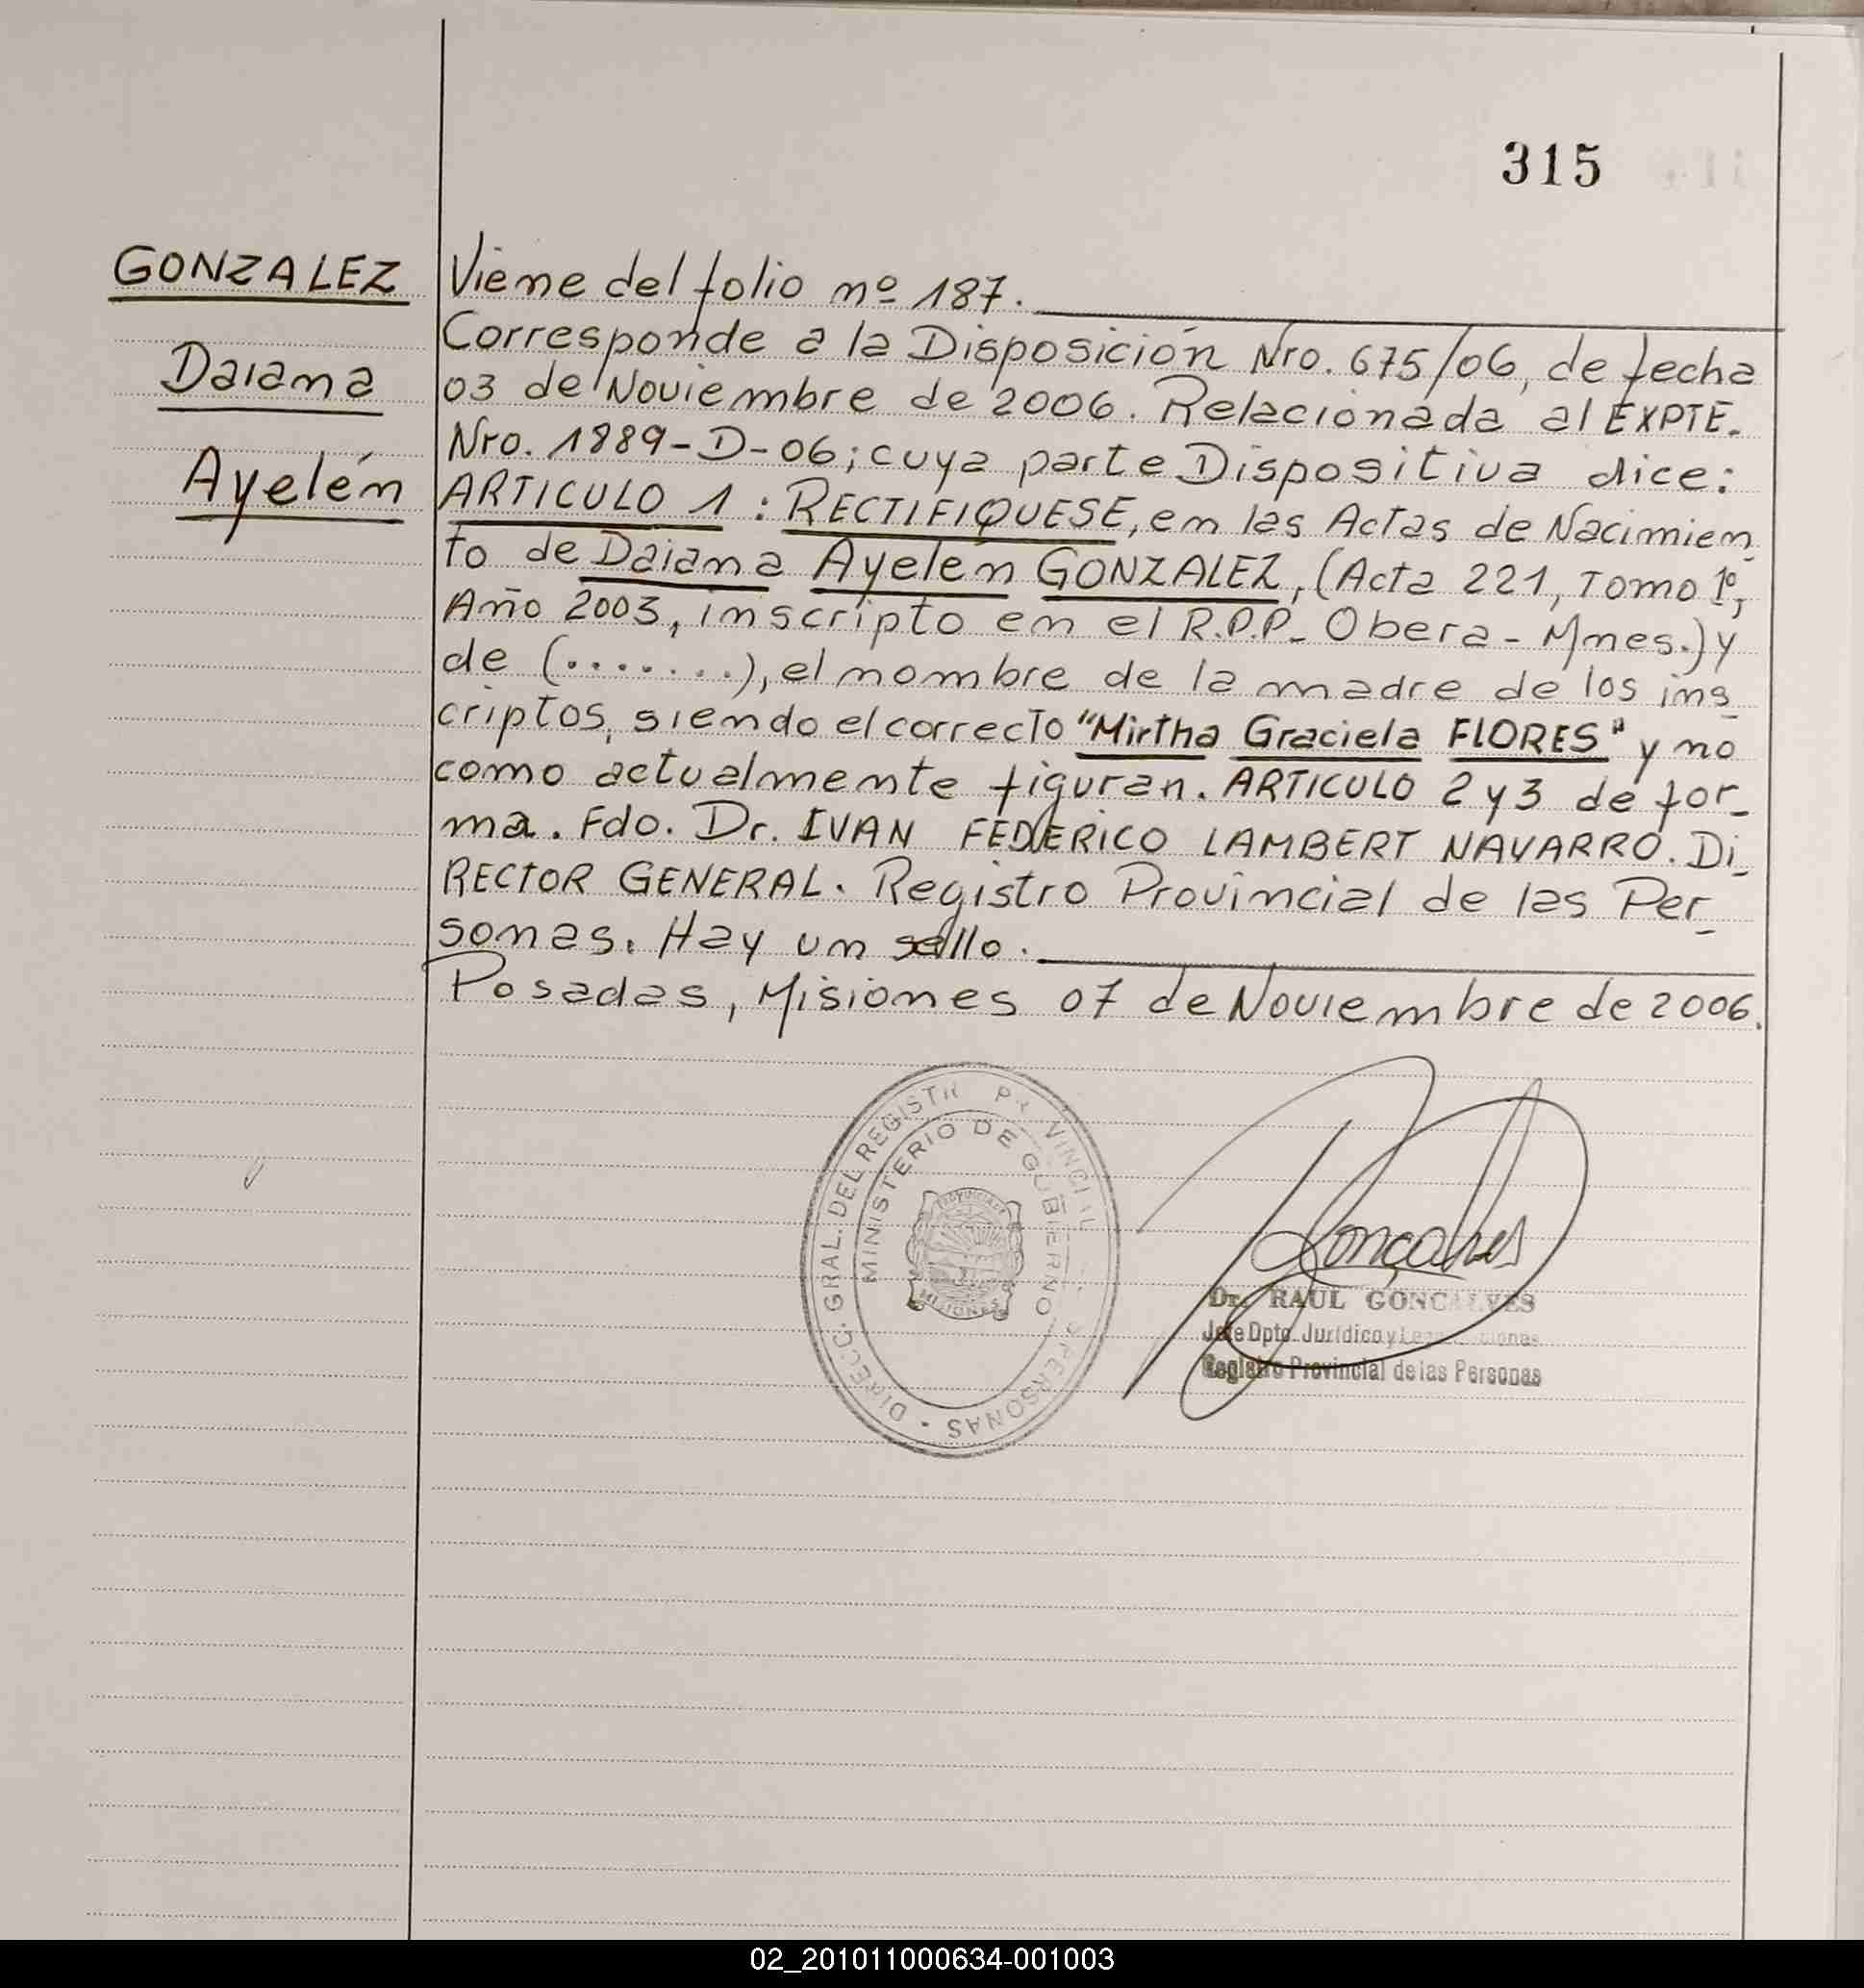 315
GONZALEZ
Daiana
Ayelén
Viene del folio nº 187.
Corresponde a la Disposición Nro. 675/06, de fecha
03 de Noviembre de 2006. Relacionada al EXPTE.
Nro. 1889-D-06; cuya parte Dispositiva dice:
ARTICULO 1 : RECTIFIQUESE, en las Actas de Nacimien
to de Daiana Ayelén GONZALEZ, (Acta 221, Tomo 1º,
Año 2003, inscripto en el R.P.P- Obera - Mnes.) y
de (........), el nombre de la madre de los ins
criptos, siendo el correcto "Mirtha Graciela FLORES" y no
como actualmente figuran. ARTICULO 2 y 3 de for_
ma. Fdo. Dr. IVAN FEDERICO LAMBERT NAVARRO. Di_
RECTOR GENERAL. Registro Provincial de las Per_
sonas. Hay un sello.
Posadas, Misiones 07 de Noviembre de 2006.
DIRECC. GRAL. DEL REGISTR PR VINCIAL PERSONAS
MINISTERIO DE GOBIERNO
PROVINCIA
MISIONES
Gonçalves
Dr. RAUL GONCALVES
Jefe Dpto. Jurídico y
Registro Provincial de las Personas
02_201011000634-001003